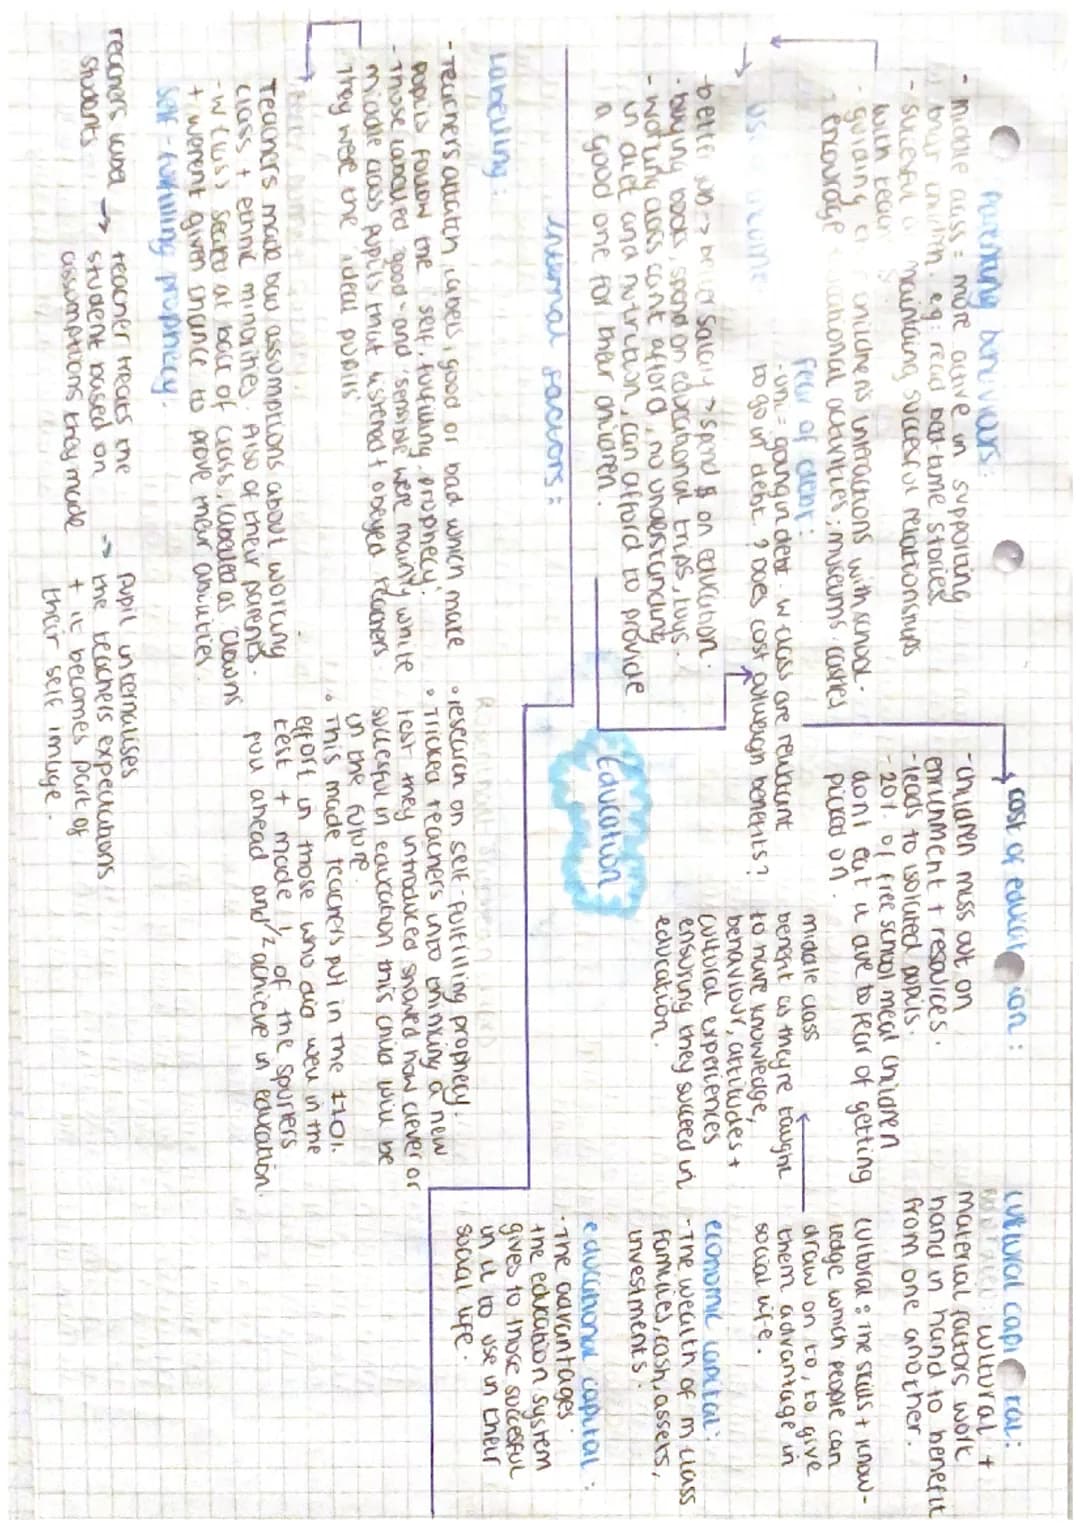 Parenting behaviours:
- middle class = more active in supporting
their children. eg: read bed-time stories
- succesful maintaining succesful relationships
with teachers
- guiding childrens interactions with school.
encourage educational activities; museums, castles
use income
- better job -> better salary -> spend $ on education.
- buying books, spend on educational trips, toys.
- working class cant afford, no understanding
in diet and nutrition, can afford to provide
a good one for their children.
fear of debt:
- uni = going in debt. w class are reluctant
to go in debt. ? Does cost outweigh benefits?
cost of education:
- children miss out on
enrichment + resources.
- leads to isolated pupils.
- 20% of free school meal children
dont eat it due to fear of getting
picked on.
cultural capital:
cultural +
material factors work
hand in hand to benefit
from one another.
cultural: the skills + know-
ledge which people can
draw on to, to give
them advantage in
social life.
middle class
benefit as theyre taught
to have knowledge,
behaviour, attitudes +
cultural experiences
ensuring they suceed in
education.
economic capital:
- The wealth of m class
families, cash, assets,
investments.
educational capital:
- The advantages
the education system
gives to those succesful
in it to use in their
social life.
Education
internal factors:
Labelling:
- Teachers attatch labels, good or bad which make
pupils follow the self-fulfilling prophecy.
- Those labelled 'good' and 'sensible' were mainly white
middle class pupils that listened + obeyed teachers.
They were the 'ideal pupils'
Teachers made bad assumptions about working
class + ethnic minorities. Also of their parents.
- W class seated at back of class, labelled as 'clowns'
+ werent given chance to prove their abilities.
self-fulfilling prophecy:
teachers label students ->
teacher treats the
student based on
assumptions they made ->
pupil internalises
the teachers expectations
+ it becomes part of
their self image.
• research on self-fulfilling prophecy.
• Tricked teachers into thinking a new
test they introduced showed how clever or
succesful in education this child will be
in the future.
• This made teachers put in the 120%
effort in those who did well in the
test + made ½ of the spurters
pull ahead and achieve in education.